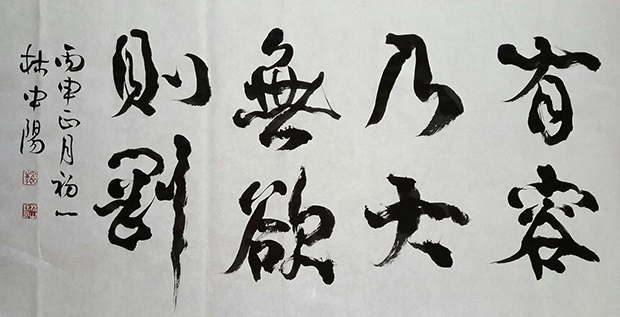 有容
乃大
無欲
則剛
丙申正月初一
林中陽